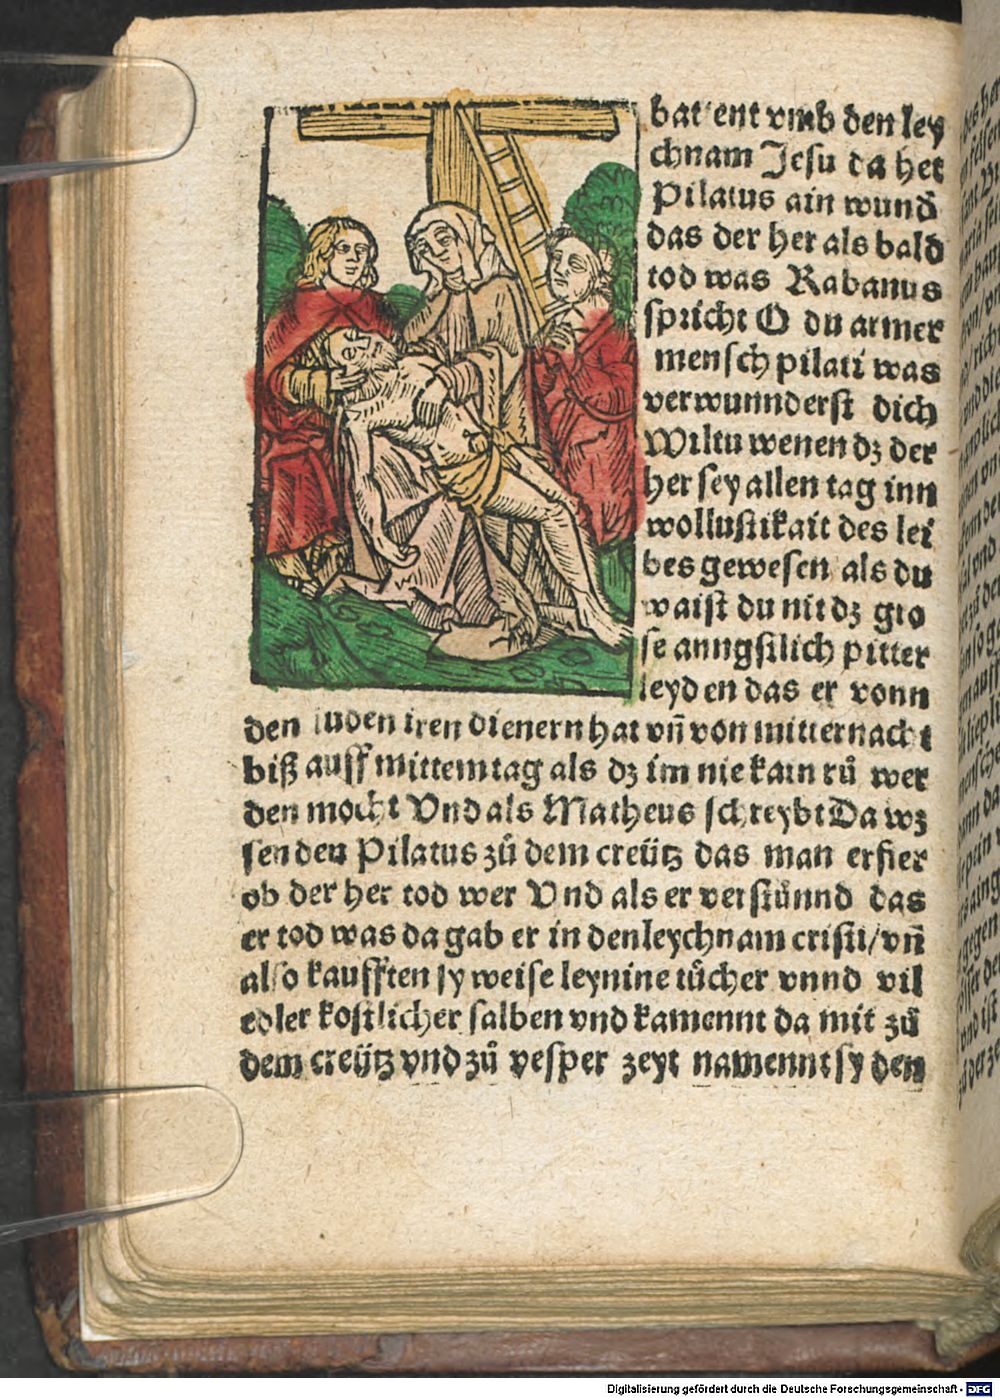 bat ent vmb den ley
chnam Jesu da het
Pilatus ain wund̄
das der her als bald
tod was Rabanus
spricht O du armer
mensch pilati was
verwunnderst dich
Wiltu wenen dz der
her sey allen tag inn
wollustikait des lei
bes gewesen als du
waist du nit dz gro
se anngstlich pitter
leyden das er vonn
den iuden iren dienern hat vn̄ von mitternacht
biß auff mittemtag als dz im nie kain rů wer
den mocht Vnd als Matheus schreybt Da wz
senden Pilatus zů dem creütz das man erfier
ob der her tod wer Vnd als er verstůnnd das
er tod was da gab er in den leychnam cristi/vn̄
also kaufften sy weise leynine tůcher vnnd vil
edler kostlicher salben vnd kamennt da mit zů
dem creütz vnd zů vesper zeyt namennt sy den
Digitalisierung gefördert durch die Deutsche Forschungsgemeinschaft - DFG